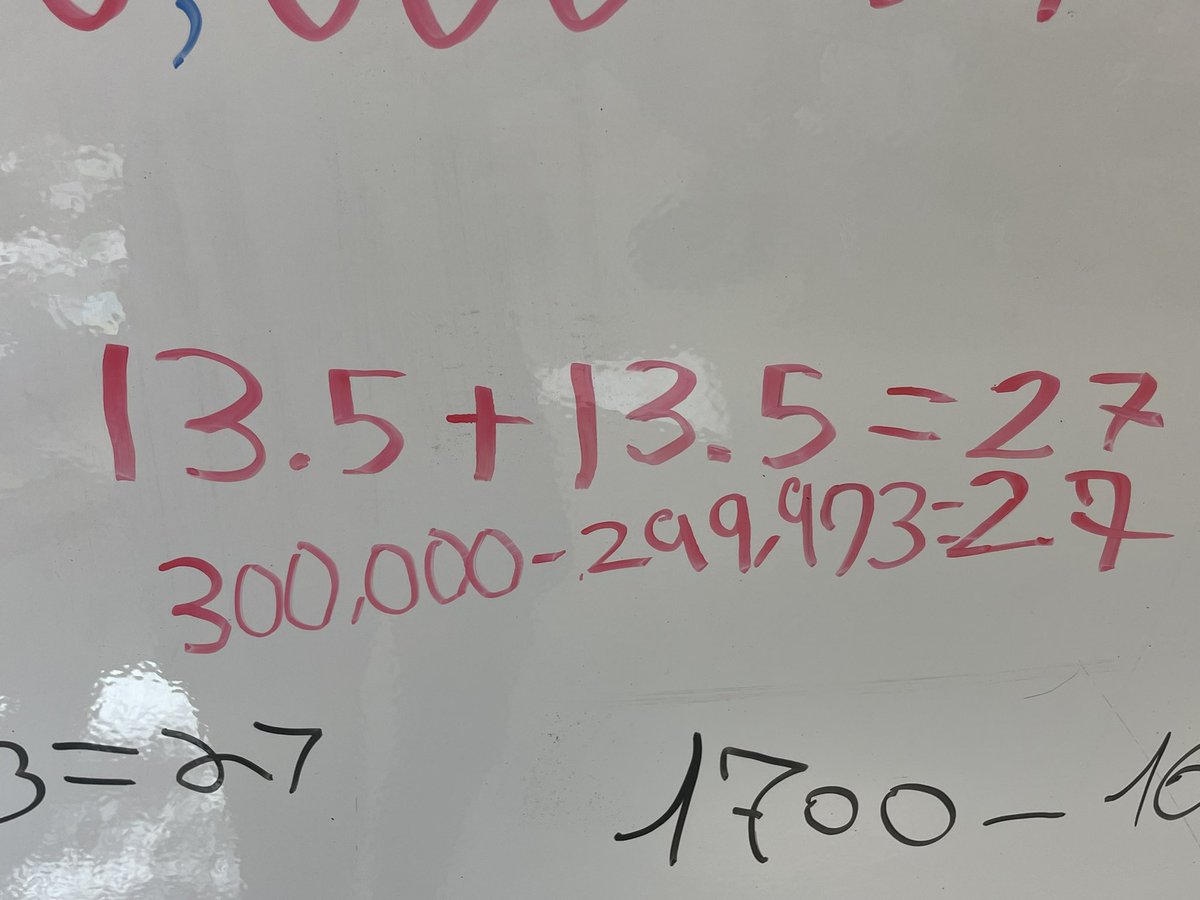 13.5+13.5=27
300,000-299,973=27
3=27
1700-16